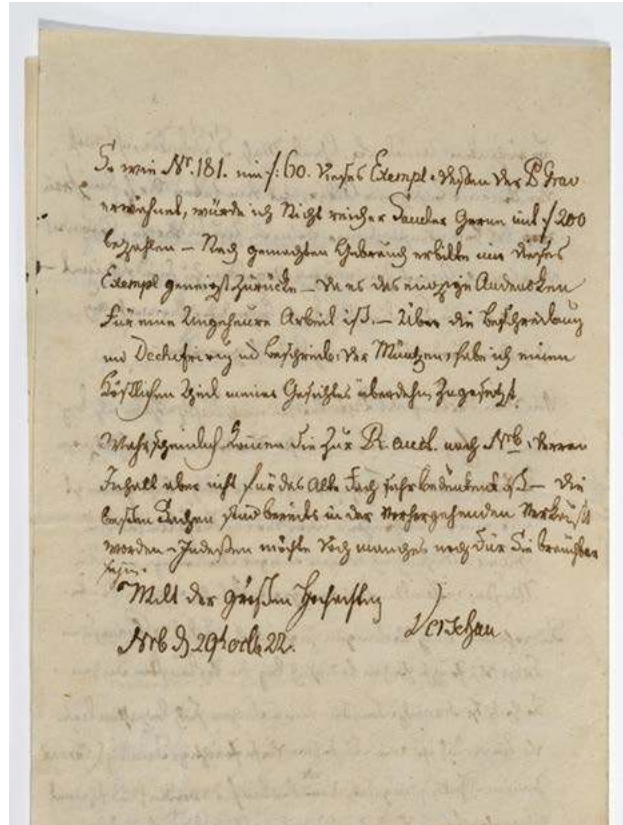 So wie Nr. 181. um f: 60. dieses Exempl. dessen der P Grav
erwähnet, würde ich Nicht reicher Gerne mit f 200
bezahlen — Nach gemachten Gebrauch erbitte mir dieses
Exempl geneigst zurücke — da es das einzige Andencken
für eine Ungeheure Arbeit ist. — Über die Beschreibung
und Dechifrirg und Beschreib: der Müntzen, habe ich einen
köstlichen Theil meines Gesichtes überdehn, zugesetzt.
Wahrscheinlich kommen die zur R. auct. nach Nrb, deren
Inhalt aber nicht für das Alte Fach sehr bedeutend ist — die
besten Sachen sind bereits in der vorhergehenden verkauft
worden — Indessen möchte doch manches noch für Sie brauchbar
seyn.
Mitt der grösten Hochachtung
Derschau
Nrb d 29t octb 22.